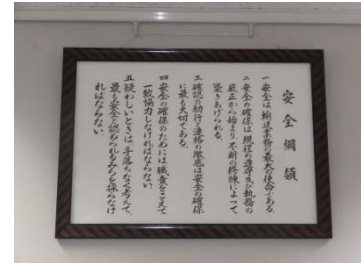 安全綱領
一 安全は輸送業務の最大の使命である。
二 安全の確保は、規程の遵守及び執務の
厳正から始まり、不断の修練によって
築きあげられる。
三 確認の励行と連絡の徹底は安全の確保
に最も大切である。
四 安全の確保のためには職責をこえて
一致協力しなければならない。
五 疑わしいときは、手落ちなく考えて、
最も安全と認められるみちを採らなけ
ればならない。